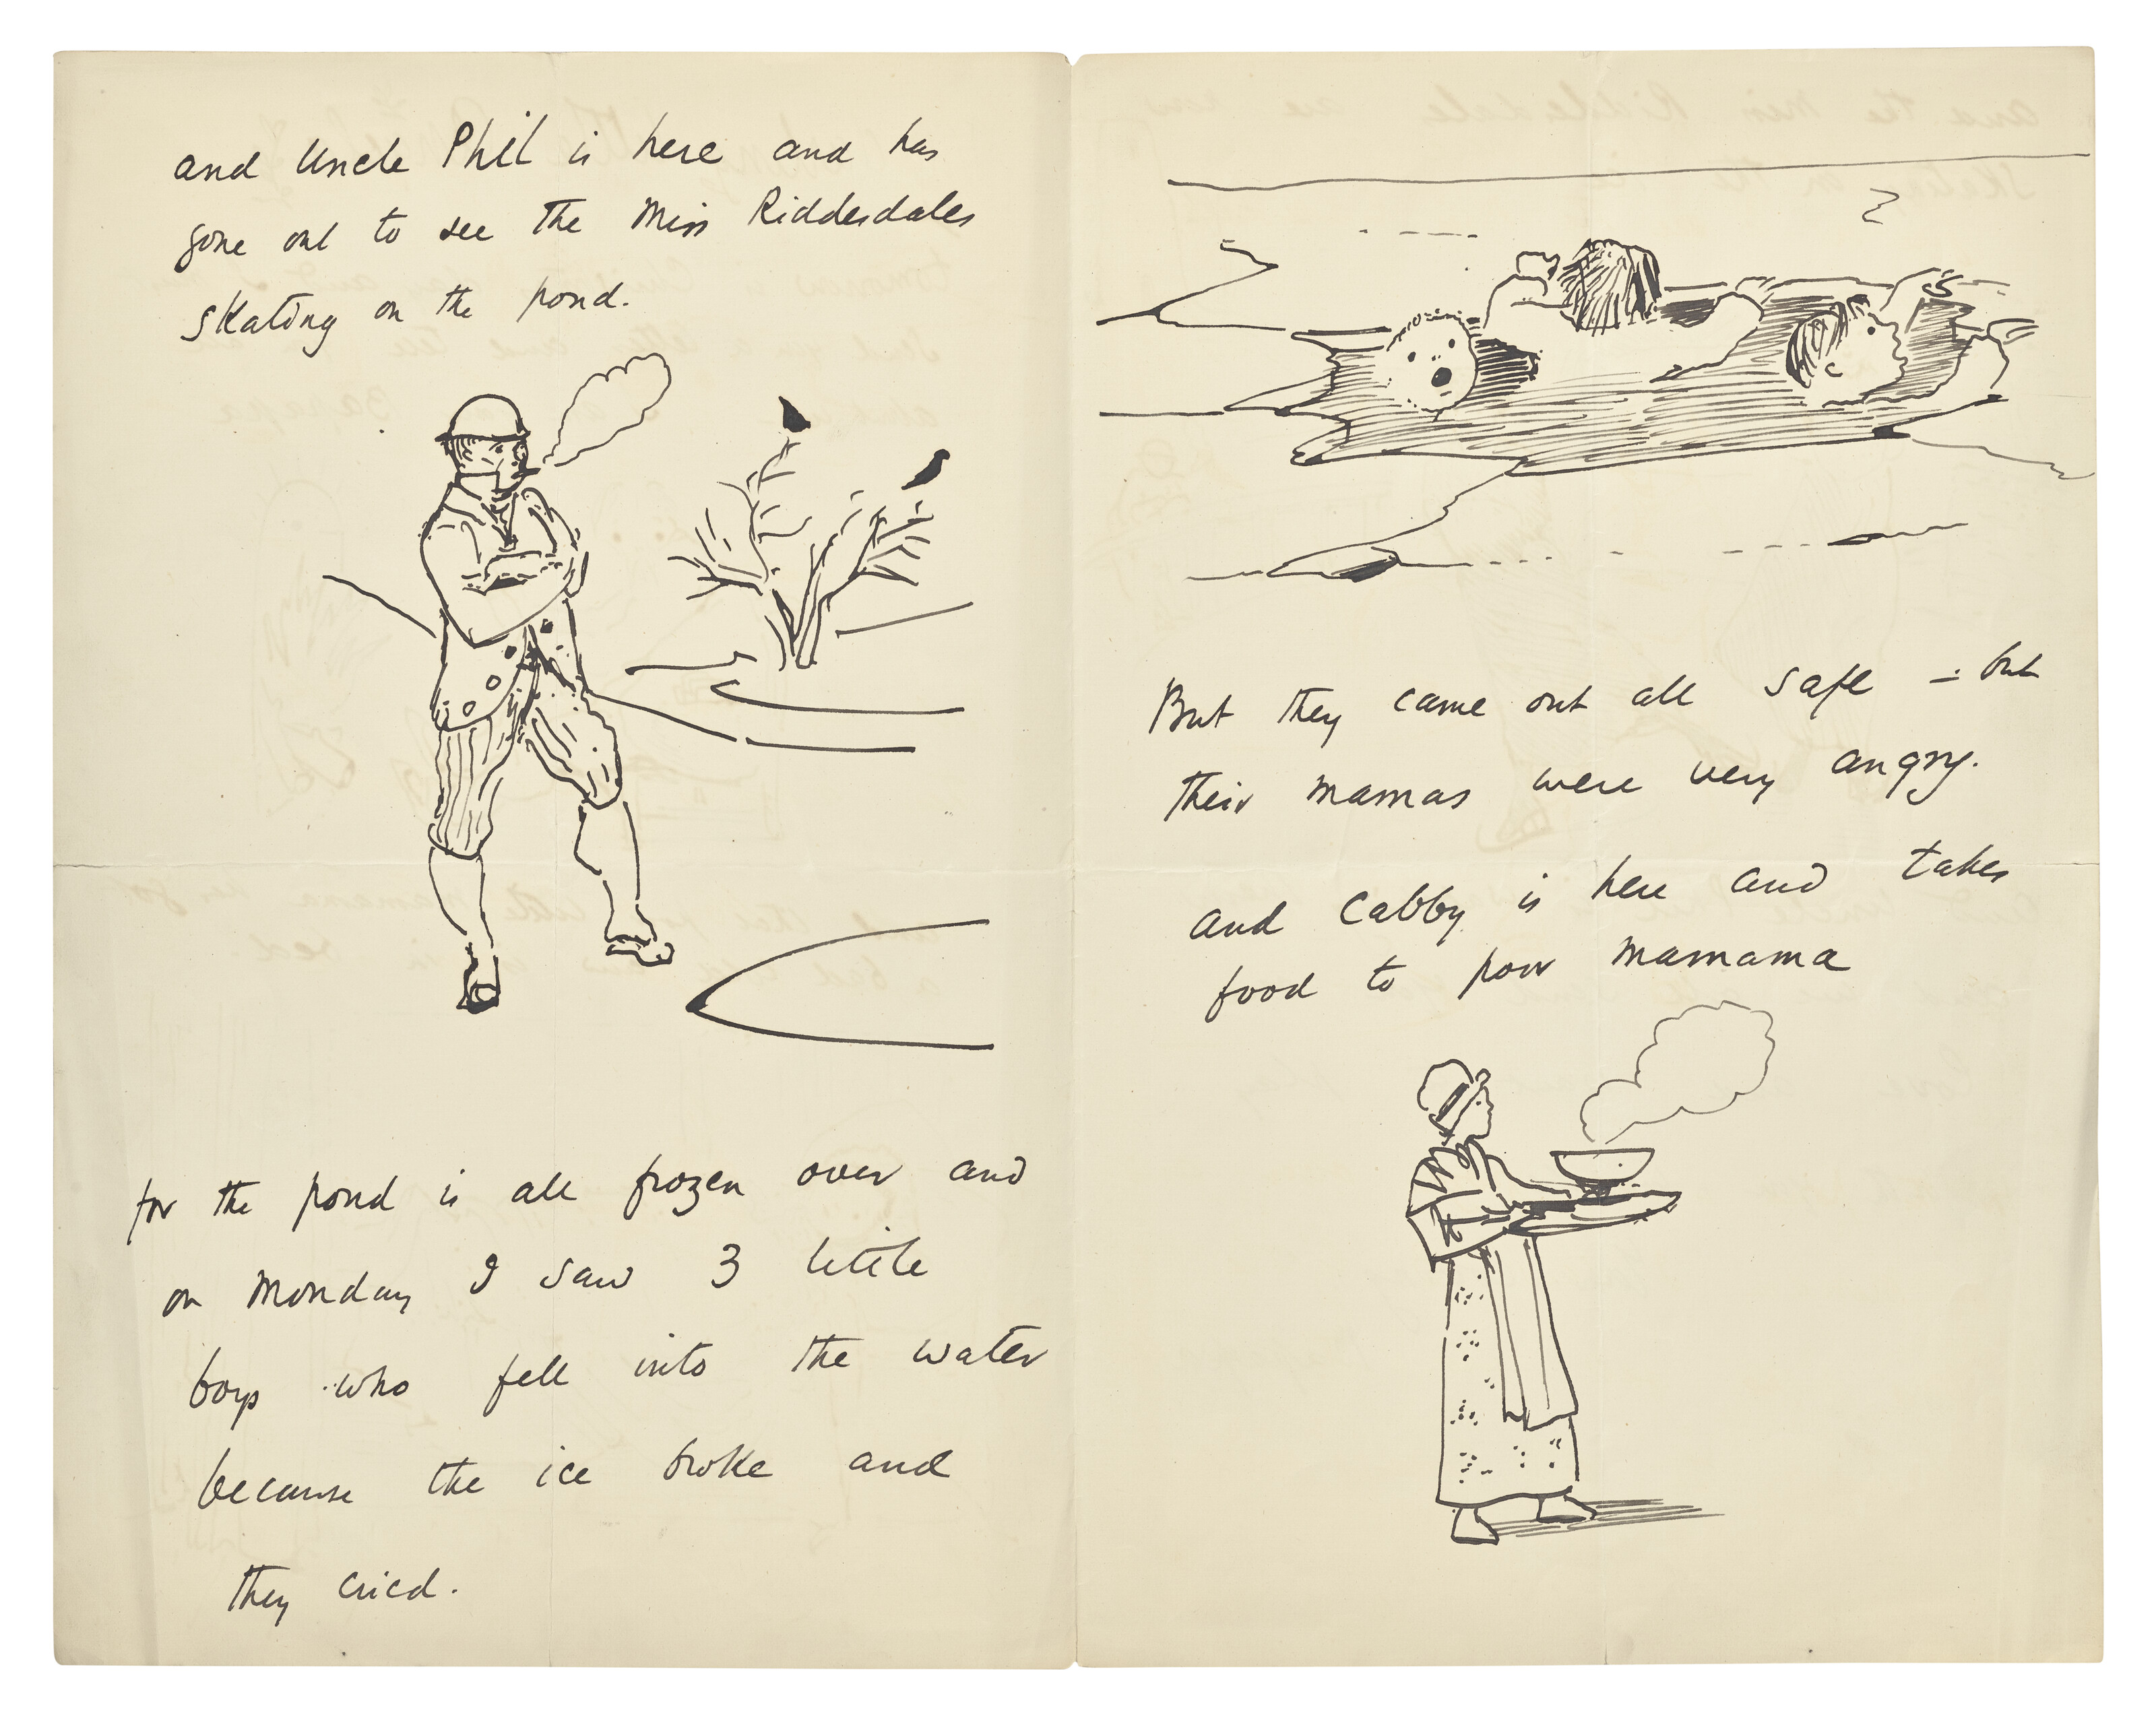 and Uncle Phil is here and has
gone out to see the Miss Riddesdales
skating on the pond.
for the pond is all frozen over and
on Monday I saw 3 little
boys who fell into the water
because the ice broke and
they cried.
But they came out all safe – but
their mamas were very angry.
and Cabby is here and takes
food to poor Mamama